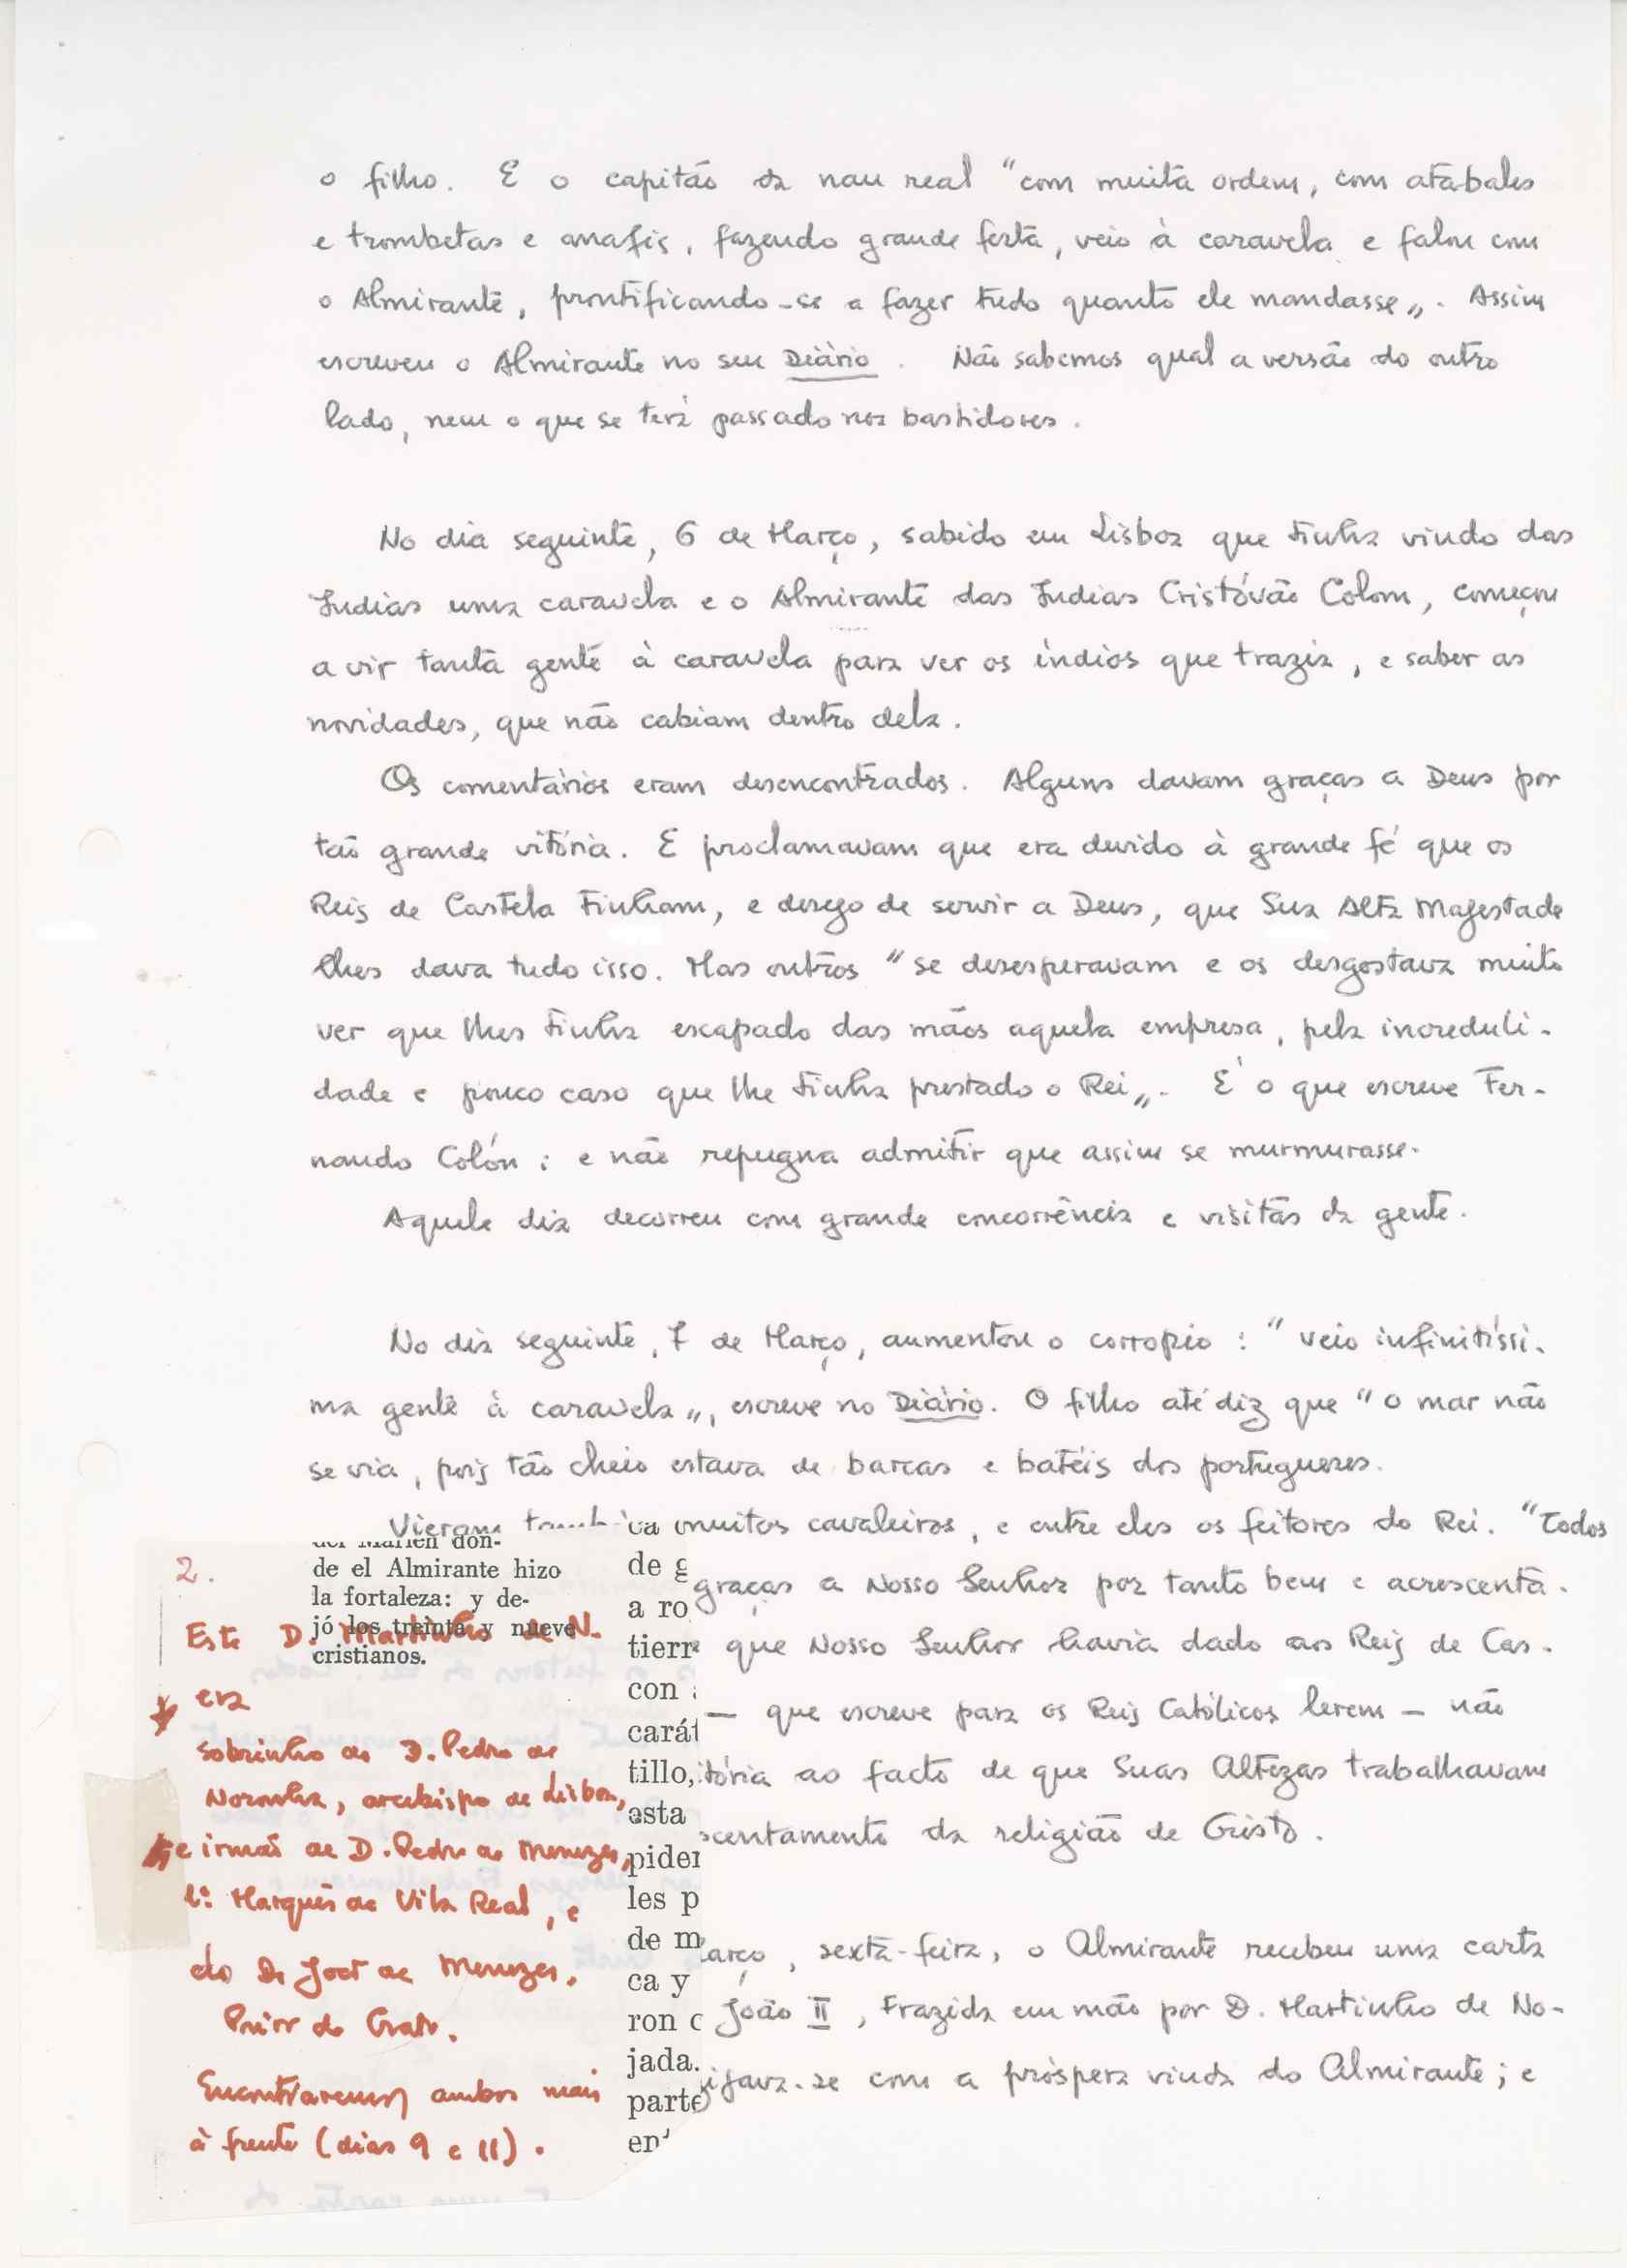 o filho. E o capitão da nau real "com muita ordem, com atabales
e trombetas e anafis, fazendo grande festa, veio à caravela e falou com
o Almirante, prontificando-se a fazer tudo quanto ele mandasse". Assim
escreveu o Almirante no seu Diário. Não sabemos qual a versão do outro
lado, nem o que se terá passado nos bastidores.
No dia seguinte, 6 de Março, sabido em Lisboa que tinha vindo das
Indias uma caravela e o Almirante das Indias Cristóvão Colom, começou
a vir tanta gente à caravela para ver os índios que trazia, e saber as
novidades, que não cabiam dentro dela.
Os comentários eram desencontrados. Alguns davam graças a Deus por
tão grande vitória. E proclamavam que era devido à grande fé que os
Reis de Castela tinham, e desejo de servir a Deus, que Sua Alta Magestade
lhes dava tudo isso. Mas outros "se desesperavam e os desgostava muito
ver que lhes tinha escapado das mãos aquela empresa, pela increduli-
dade e pouco caso que lhe tinha prestado o Rei". É o que escreve Fer-
nando Colón: e não repugna admitir que assim se murmurasse.
Aquele dia decorreu com grande concorrência e visitas da gente.
No dia seguinte, 7 de Março, aumentou o corropio: "veio infinitíssi-
ma gente à caravela", escreve no Diário. O filho até diz que "o mar não
se via, pois tão cheio estava de barcas e batéis dos portugueses.
Vieram muitos cavaleiros, e entre eles os feitores do Rei. "Todos
graças a Nosso Senhor por tanto bem e acrescenta-
que Nosso Senhor havia dado aos Reis de Cas-
— que escreve para os Reis Católicos lerem — não
itória ao facto de que Suas Altezas trabalhavam
scentamento da religião de Cristo.
arço, sexta-feira, o Almirante recebeu uma carta
João II, trazida em mão por D. Martinho de No-
ijava-se com a próspera vinda do Almirante; e
2.
Este D. Martinho de N.
era
sobrinho de D. Pedro de
Noronha, arcebispo de Lisboa,
e irmão de D. Pedro de Menezes,
1º Marquês de Vila Real, e
do D. José de Menezes,
Prior do Crato.
Encontraremos ambos mais
à frente (dias 9 e 11).
don-
de el Almirante hizo
la fortaleza: y de-
jó los treinta y nueve
cristianos.
ca
de g
a ro
tierr
con
carát
tillo,
esta
pider
les p
de m
ca y
ron c
jada.
parte
en